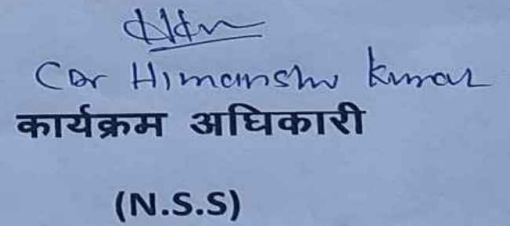 (Dr Himanshu Kumar
कार्यक्रम अधिकारी
(N.S.S)